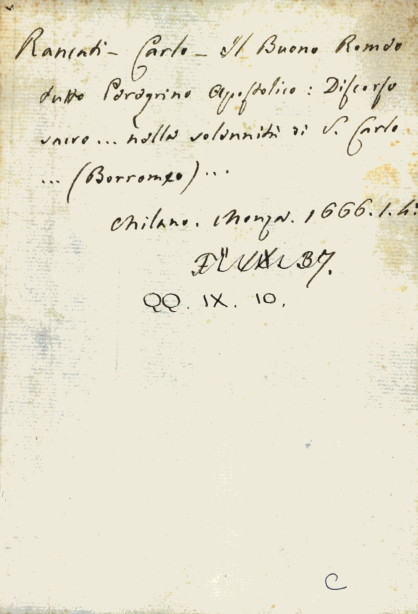 Rancati - Carlo - Il Buono Romeo
tutto Peregrino Apostolico : Discorso
sacro ... nella solennità di S. Carlo
... (Borromeo) ...
Milano. Monza. 1666. 1. 4.
37.
QQ. IX. 10.
C